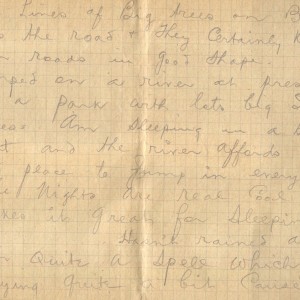 Lines of Big trees on B
s the road & They Certainly k
roads in good shape.
ped on a river at pres
a park with lots big
ese Am sleeping in a
t and the river affords
place to jump in every
Nights are real Cool
kes it great for sleepin
Hasn't rained a
Quite a Spell which
ying quite a bit Cause